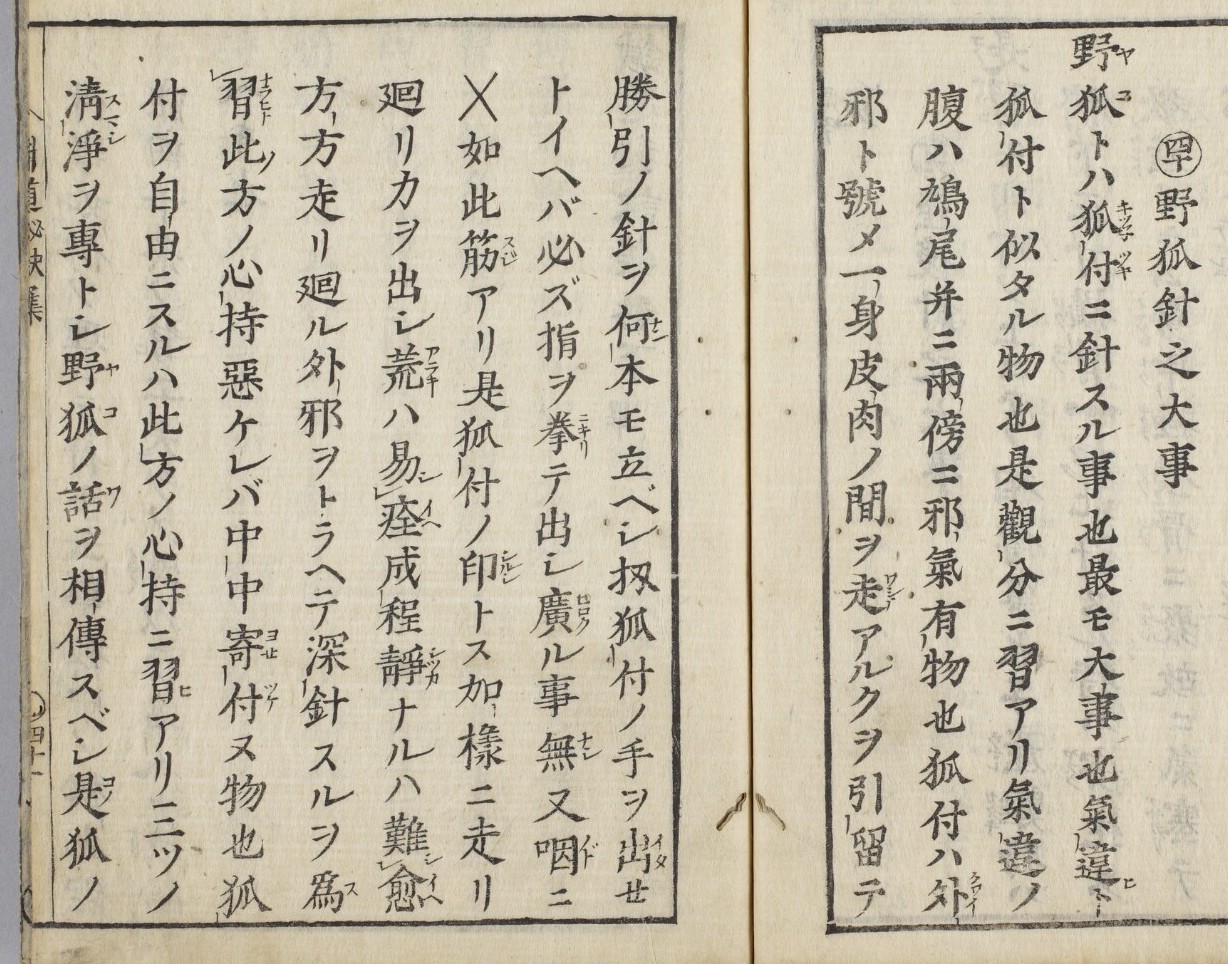 ㊃野狐針之大事
野狐トハ狐付ニ針スル事也最モ大事也氣違ト
狐付ト似タル物也是觀分ニ習アリ氣違ノ
腹ハ鳩尾并ニ兩傍ニ邪氣有物也狐付ハ外
邪ト號メ一身皮肉ノ間ヲ走アルクヲ引留テ
勝引ノ針ヲ何本モ立ベシ扨狐付ノ手ヲ出セ
トイヘバ必ズ指ヲ拳テ出シ廣ル事無又咽ニ
╳如此筋アリ是狐付ノ印トス加樣ニ走リ
廻リカヲ出シ荒ハ易痊成程靜ナルハ難愈
方方走リ廻ル外邪ヲトラヘテ深針スルヲ爲
習此方ノ心持惡ケレバ中中寄付ヌ物也狐
付ヲ自由ニスルハ此方ノ心持ニ習アリ三ツノ
淸淨ヲ專トシ野狐ノ話ヲ相傳スベシ是狐ノ